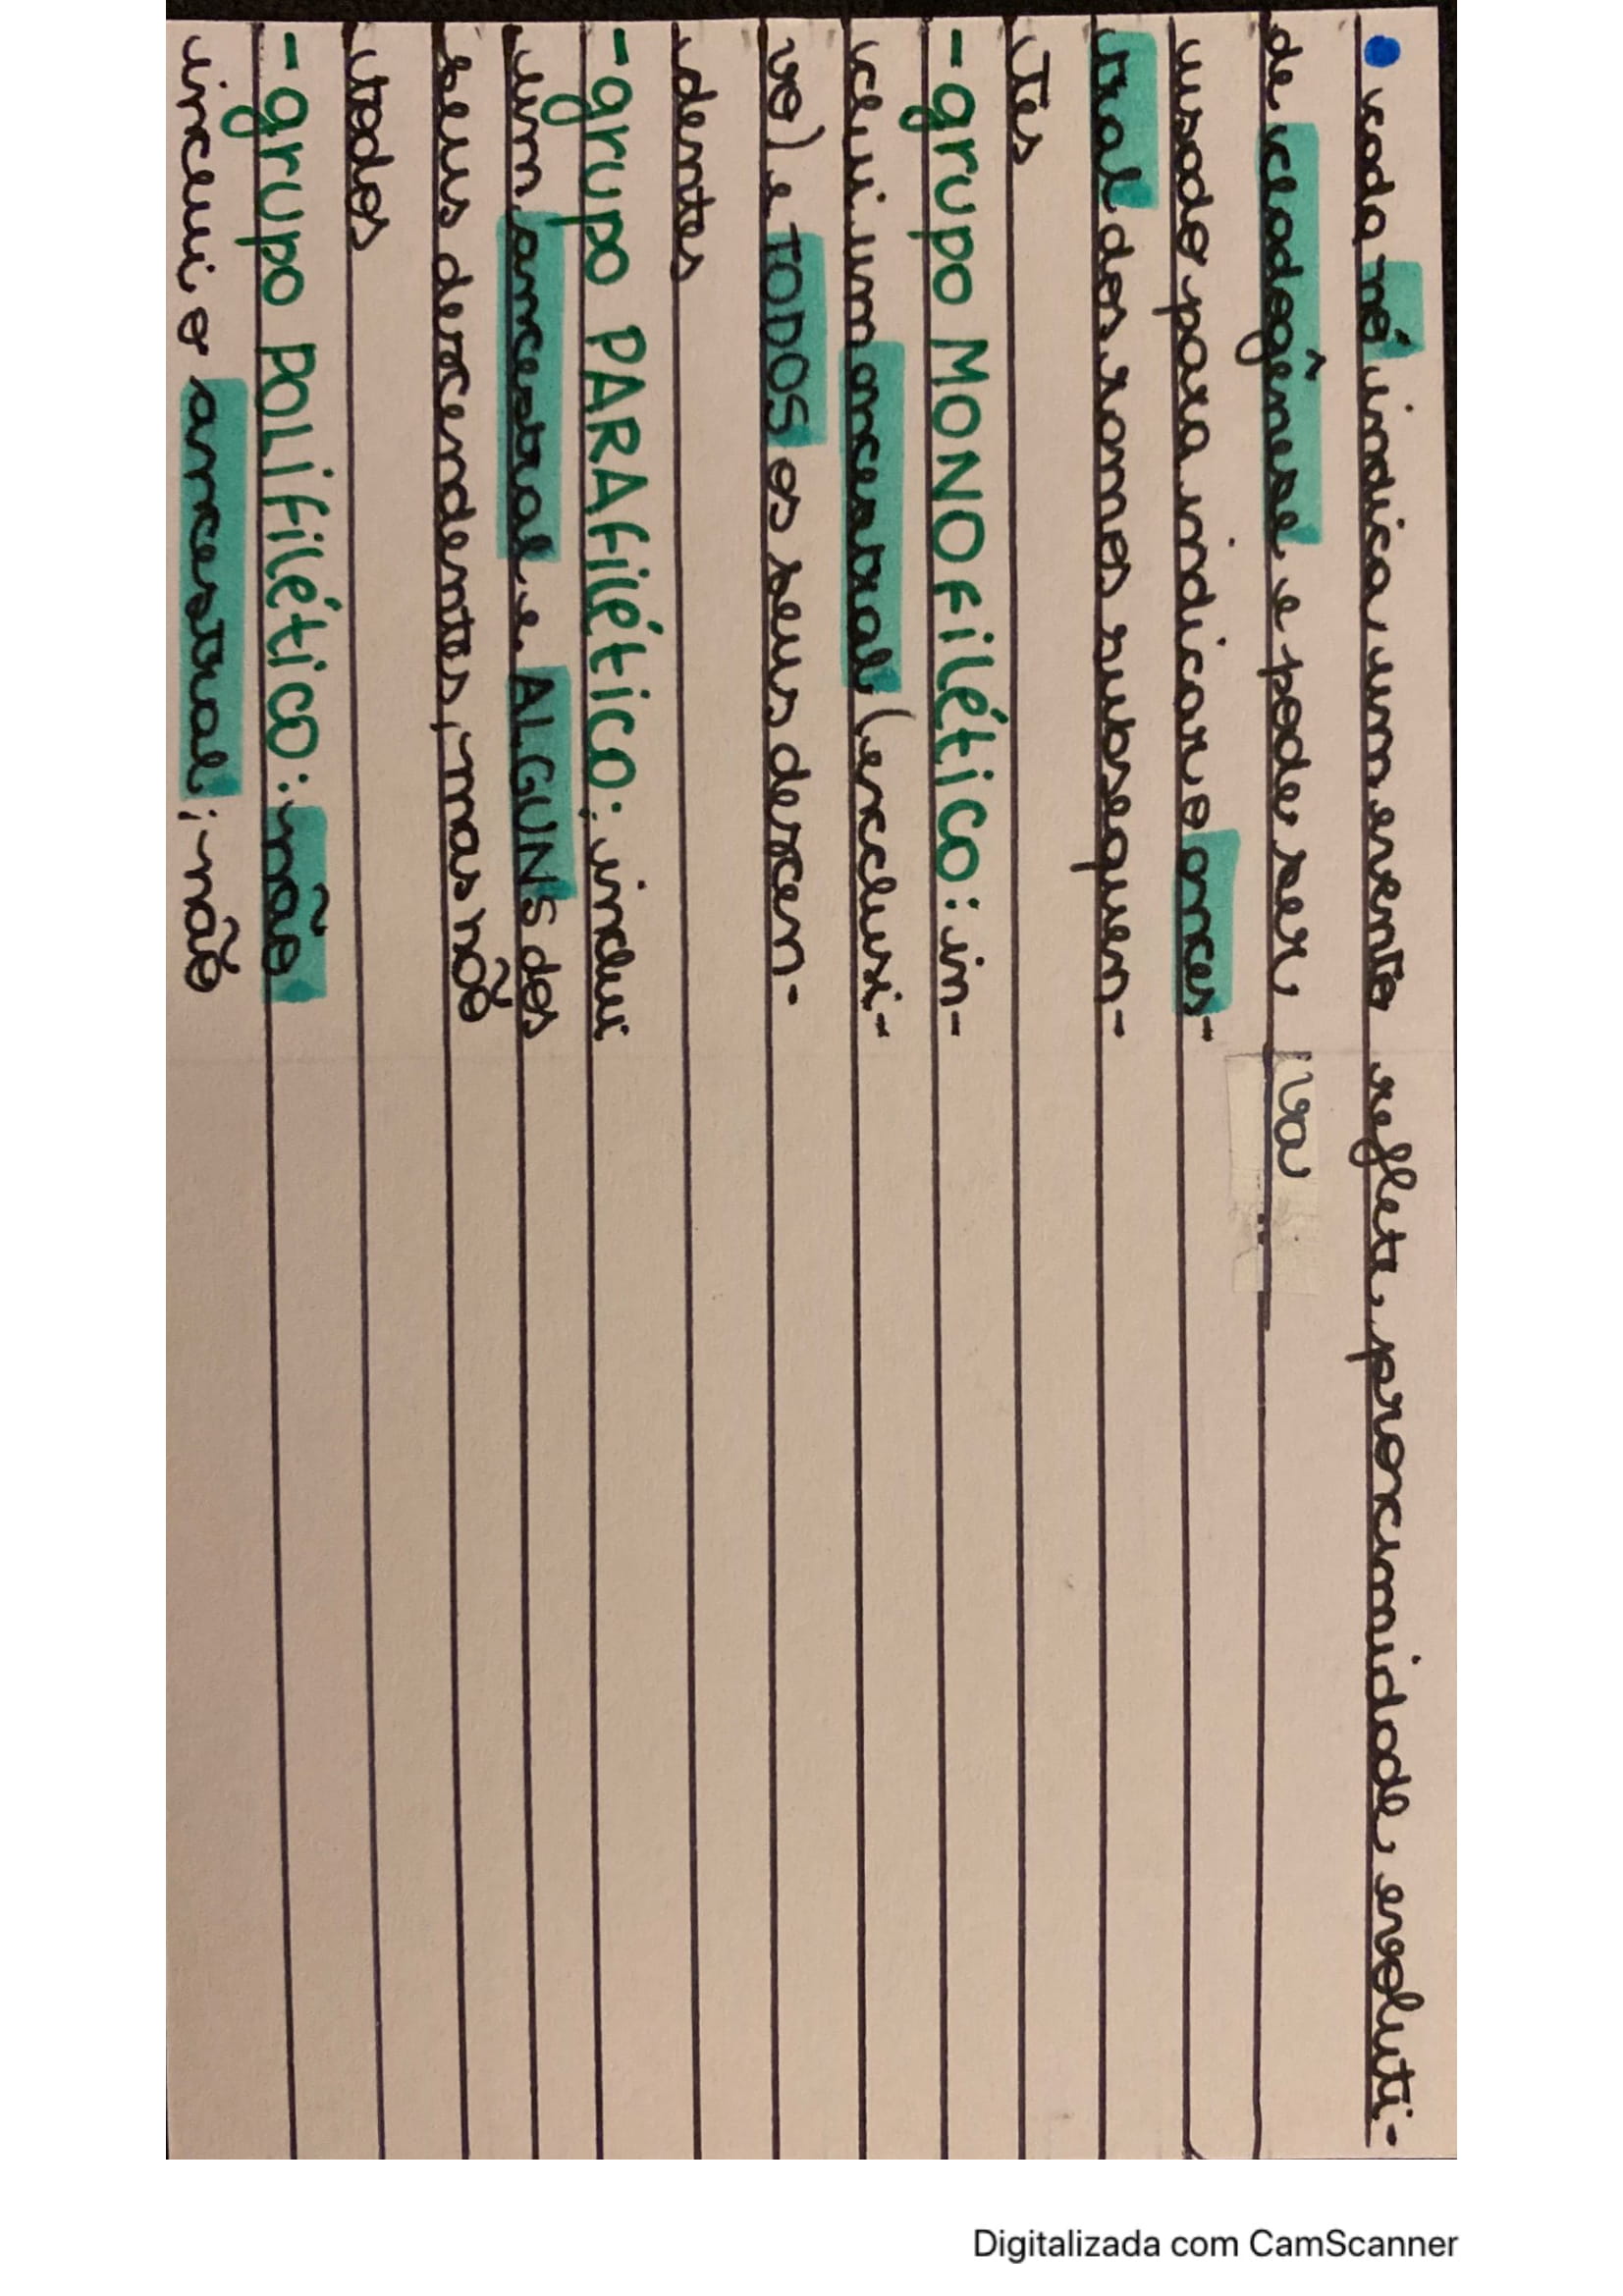 • cada nó indica um evento
de cladogênese e pode ser
usado para indicar o ances-
tral dos ramos subsequen-
tes
- grupo MONOFILÉTICO: in-
clui um ancestral (exclusi-
vo) e TODOS os seus descen-
dentes
- grupo PARAFILÉTICO: inclui
um ancestral e ALGUNS dos
seus descendentes, mas não
todos
- grupo POLIFILÉTICO: não
inclui o ancestral; não
reflete proximidade evoluti-
va
Digitalizada com CamScanner